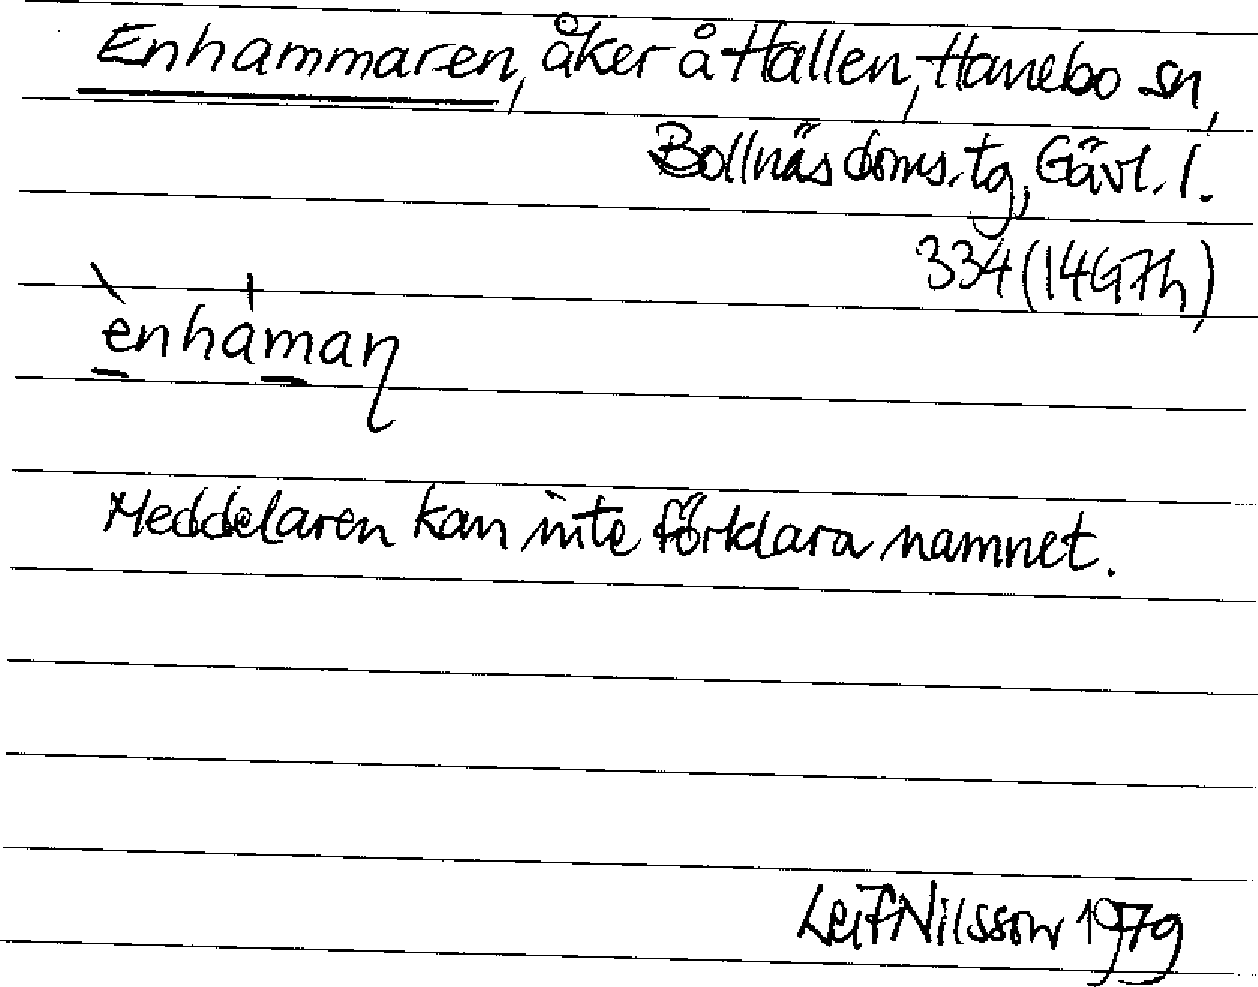 Enhammaren, åker å Hällen, Hanebo sn,
Bollnäs doms. tg, Gävl. l.
334 (14G7h)
ènhá̍maη
Meddelaren kan inte förklara namnet.
Leif Nilsson 1979